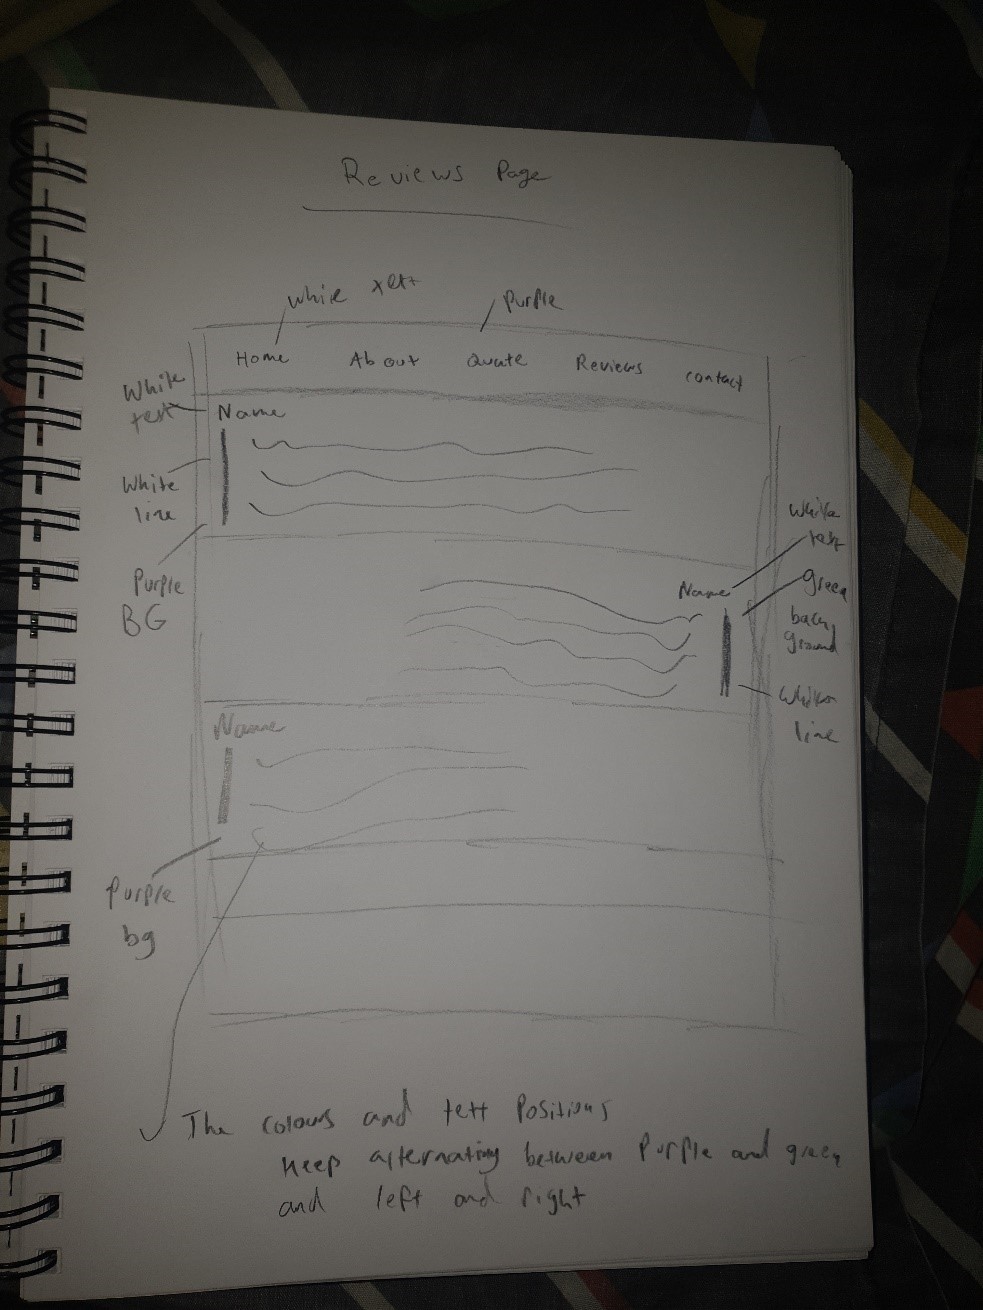 Reviews Page
White text
Purple
Home About Quote Reviews contact
White
text
Name
White
line
White
text
Purple
BG
Name
green
back
ground
White
line
Name
Purple
bg
The colours and text Positions
Keep alternating between Purple and green
and left and right